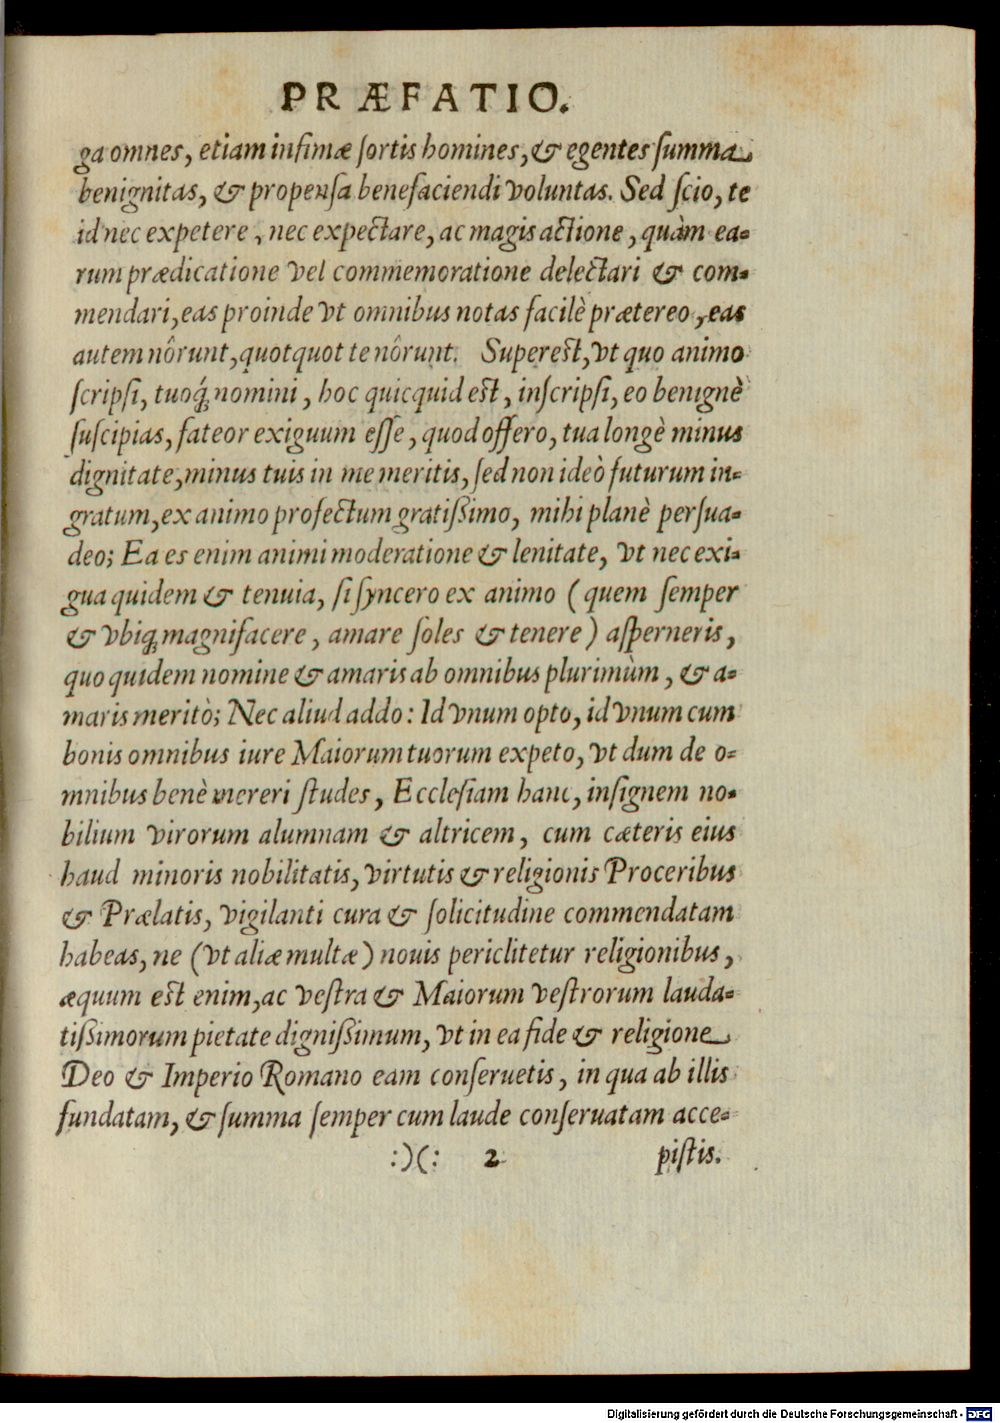 PRÆFATIO.
ga omnes, etiam infimæ ſortis homines, & egentes ſumma
benignitas, & propenſa benefaciendi voluntas. Sed ſcio, te
id nec expetere, nec expectare, ac magis actione, quàm ea-
rum prædicatione vel commemoratione delectari & com-
mendari, eas proinde vt omnibus notas facilè prætereo, eas
autem nôrunt, quotquot te nôrunt. Supereſt, vt quo animo
ſcripſi, tuoq́; nomini, hoc quicquid eſt, inſcripſi, eo benignè
ſuſcipias, fateor exiguum eſſe, quod offero, tua longè minus
dignitate, minus tuis in me meritis, ſed non ideò futurum in-
gratum, ex animo profectum gratißimo, mihi planè perſua-
deo; Ea es enim animi moderatione & lenitate, vt nec exi-
gua quidem & tenuia, ſi ſyncero ex animo (quem ſemper
& vbiq; magnifacere, amare ſoles & tenere) aſperneris,
quo quidem nomine & amaris ab omnibus plurimùm, & a-
maris meritò; Nec aliud addo: Id vnum opto, id vnum cum
bonis omnibus iure Maiorum tuorum expeto, vt dum de o-
mnibus benè mereri ſtudes, Eccleſiam hanc, inſignem no-
bilium virorum alumnam & altricem, cum cæteris eius
haud minoris nobilitatis, virtutis & religionis Proceribus
& Prælatis, vigilanti cura & ſolicitudine commendatam
habeas, ne (vt aliæ multæ) nouis periclitetur religionibus,
æquum eſt enim, ac veſtra & Maiorum veſtrorum lauda-
tißimorum pietate dignißimum, vt in ea fide & religione
Deo & Imperio Romano eam conſeruetis, in qua ab illis
fundatam, & ſumma ſemper cum laude conſeruatam acce-
:)(: 2 piſtis.
Digitalisierung gefördert durch die Deutsche Forschungsgemeinschaft - DFG